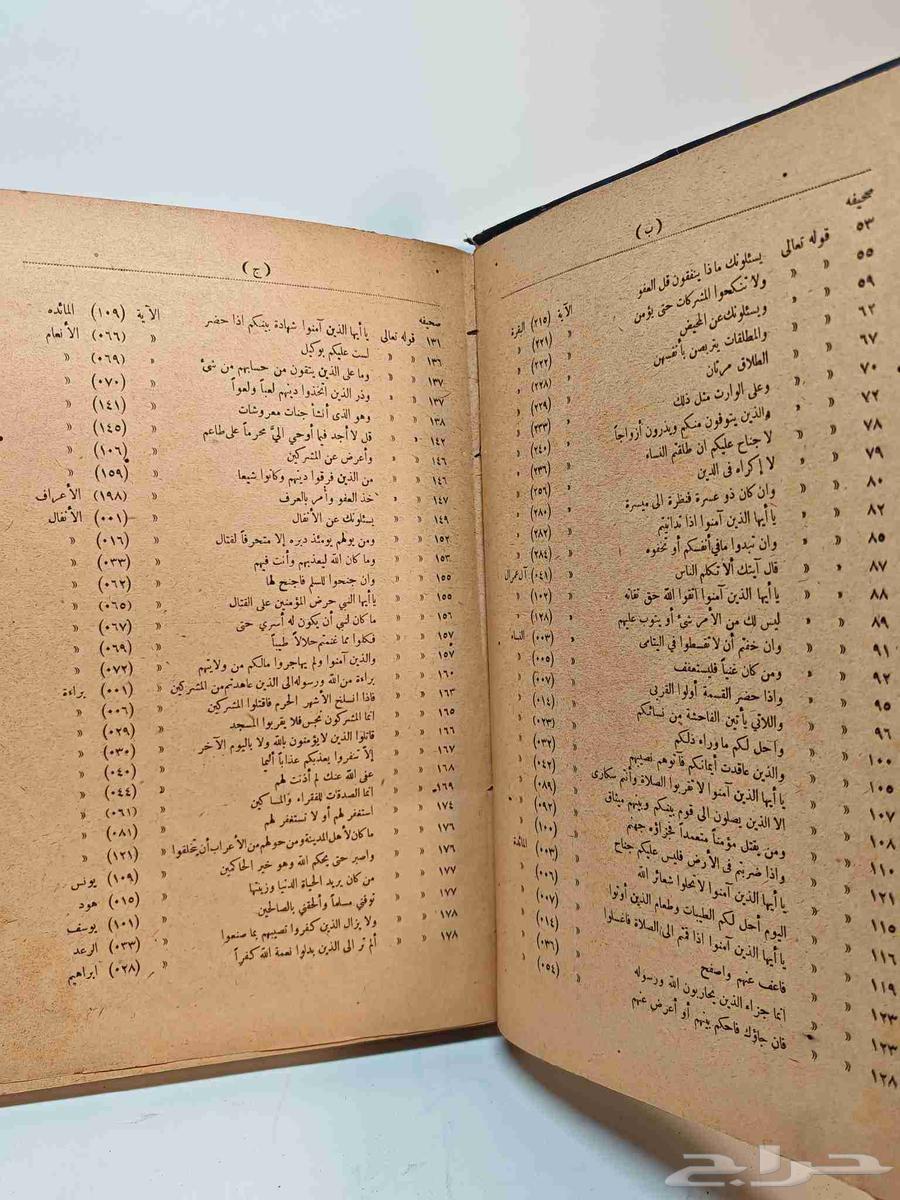 (ب)
صحيفه
٥٣ قوله تعالى يسئلونك ماذا ينفقون قل العفو الآية (٢١٥) البقرة
٥٥ » » ولا تنكحوا المشركات حتى يؤمن » (٢٢١) »
٥٩ » » ويسئلونك عن المحيض » (٢٢٢) »
٦٢ » » والمطلقات يتربصن بأنفسهن » (٢٢٨) »
٦٧ » » الطلاق مرتان » (٢٢٩) »
٧٠ » » وعلى الوارث مثل ذلك » (٢٣٣) »
٧٢ » » والذين يتوفون منكم ويذرون أزواجاً » (٢٤٠) »
٧٨ » » لا جناح عليكم ان طلقتم النساء » (٢٣٦) »
٧٩ » » لا إكراه فى الدين » (٢٥٦) »
٨٠ » » وان كان ذو عسرة فنظرة الى ميسرة » (٢٨٠) »
٨٢ » » يا أيها الذين آمنوا اذا تداينتم » (٢٨٢) »
٨٥ » » وان تبدوا مافي أنفسكم أو تخفوه » (٢٨٤) »
٨٧ » » قال آيتك ألا تكلم الناس » (٠٤١) آل عمران
٨٨ » » يا أيها الذين آمنوا اتقوا الله حق تقاته » (١٠٢) »
٨٩ » » ليس لك من الأمر شئ أو يتوب عليهم » (١٢٨) »
٩١ » » وان خفتم أن لا تقسطوا فى اليتامى » (٠٠٣) النساء
٩٢ » » ومن كان غنياً فليستعفف » (٠٠٥) »
٩٥ » » واذا حضر القسمة أولوا القربى » (٠٠٧) »
٩٦ » » واللاتي يأتين الفاحشة من نسائكم » (٠١٤) »
١٠٠ » » واحل لكم ماوراء ذلكم » (٠٢٣) »
١٠٥ » » والذين عاقدت أيمانكم فآتوهم نصيبهم » (٠٣٢) »
١٠٧ » » يا أيها الذين آمنوا لا تقربوا الصلاة وأنتم سكارى » (٠٤٢) »
١٠٨ » » الا الذين يصلون الى قوم بينكم وبينهم ميثاق » (٠٨٩) »
١١٠ » » ومن يقتل مؤمناً متعمداً فجزاؤه جهنم » (٠٩٢) »
١٢١ » » واذا ضربتم فى الأرض فليس عليكم جناح » (١٠٠) »
١١٥ » » يا أيها الذين آمنوا لاتحلوا شعائر الله » (٠٠٣) المائدة
١١٦ » » اليوم أحل لكم الطيبات وطعام الذين أوتوا » (٠٠٦) »
١١٩ » » يا أيها الذين آمنوا اذا قمتم الى الصلاة فاغسلوا » (٠٠٧) »
١٢٣ » » فاعف عنهم واصفح » (٠١٤) »
١٢٣ » » انما جزاء الذين يحاربون الله ورسوله » (٠٣٦) »
١٢٨ » » فان جاؤك فاحكم بينهم أو أعرض عنهم » (٠٥٤) »
(ج)
صحيفه
١٣١ قوله تعالى ياأيها الذين آمنوا شهادة بينكم اذا حضر الآية (١٠٩) المائده
١٣٦ » » لست عليكم بوكيل » (٠٦٦) الأنعام
١٣٧ » » وما على الذين يتقون من حسابهم من شئ » (٠٦٩) »
١٣٧ » » وذر الذين اتخذوا دينهم لعباً ولهواً » (٠٧٠) »
١٣٨ » » وهو الذى أنشأ جنات معروشات » (١٤١) »
١٤٢ » » قل لا أجد فيما أوحي الىّ محرماً على طاعم » (١٤٥) »
١٤٦ » » وأعرض عن المشركين » (١٠٦) »
١٤٦ » » من الذين فرقوا دينهم وكانوا شيعا » (١٥٩) »
١٤٧ » » خذ العفو وأمر بالعرف » (١٩٨) الأعراف
١٤٩ » » يسئلونك عن الأنفال » (٠٠١) الأنفال
١٥٢ » » ومن يولهم يومئذ دبره إلا متحرفاً لقتال » (٠١٦) »
١٥٣ » » وما كان الله ليعذبهم وأنت فيهم » (٠٣٣) »
١٥٥ » » وان جنحوا للسلم فاجنح لها » (٠٦٢) »
١٥٥ » » ياأيها النبي حرض المؤمنين على القتال » (٠٦٥) »
١٥٦ » » ماكان لنبي أن يكون له أسرى حتى » (٠٦٧) »
١٥٧ » » فكلوا مما غنمتم حلالاً طيباً » (٠٦٩) »
١٥٧ » » والذين آمنوا ولم يهاجروا مالكم من ولايتهم » (٠٧٢) »
١٦٠ » » براءة من الله ورسوله الى الذين عاهدتم من المشركين » (٠٠١) براءة
١٦٣ » » فاذا انسلخ الأشهر الحرم فاقتلوا المشركين » (٠٠٦) »
١٦٥ » » انما المشركون نجس فلا يقربوا المسجد » (٠٢٩) »
١٦٦ » » قاتلوا الذين لايؤمنون بالله ولا باليوم الآخر » (٠٣٠) »
١٦٧ » » إلا تنفروا يعذبكم عذاباً أليما » (٠٤٠) »
١٦٨ » » عفى الله عنك لم أذنت لهم » (٠٤٤) »
١٦٩ » » أنما الصدقات للفقراء والمساكين » (٠٦١) »
١٧٤ » » استغفر لهم أو لا تستغفر لهم » (٠٨١) »
١٧٦ » » ماكان لأهل المدينة ومن حولهم من الأعراب أن يتخلفوا » (١٢١) »
١٧٦ » » واصبر حتى يحكم الله وهو خير الحاكمين » (١٠٩) يونس
١٧٧ » » من كان يريد الحياة الدنيا وزينتها » (٠١٥) هود
١٧٧ » » توفني مسلماً وألحقني بالصالحين » (١٠١) يوسف
١٧٨ » » ولا يزال الذين كفروا تصيبهم بما صنعوا » (٠٣٣) الرعد
١٧٨ » » ألم تر الى الذين بدلوا نعمة الله كفراً » (٠٢٨) ابراهيم
حراج